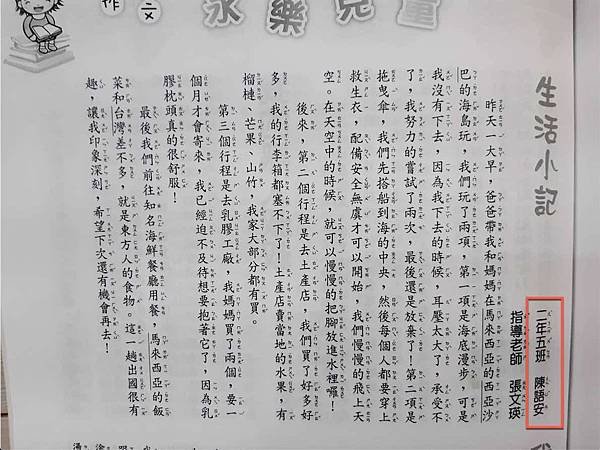 作文
永樂兒童
生活小記
二年五班　陳語安
指導老師　張文瑛
昨天一大早，爸爸帶我和媽媽在馬來西亞的西亞沙
巴的海島玩，我們玩了兩項，第一項是海底漫步，可是
我沒有下去，因為我下去的時候，耳壓太大了，承受不
了，我努力的嘗試了兩次，最後還是放棄了！第二項是
拖曳傘，我們先搭船到海的中央，然後每個人都要穿上
救生衣，配備安全無虞才可以開始，我們慢慢的飛上天
空。在天空中的時候，就可以慢慢的把腳放進水裡囉！
後來，第二個行程是去土產店，我們買了好多好
多，我的行李箱都塞不下了！土產店賣當地的水果，有
榴槤、芒果、山竹，我家大部分都有買。
第三個行程是去乳膠工廠，我媽媽買了兩個，要一
個月才會寄來，我已經迫不及待想要抱著它了，因為乳
膠枕頭真的很舒服！
最後我們前往知名海鮮餐廳用餐，馬來西亞的飯
菜和台灣差不多，就是東方人的食物。這一趟出國很有
趣，讓我印象深刻，希望下次還有機會再去！